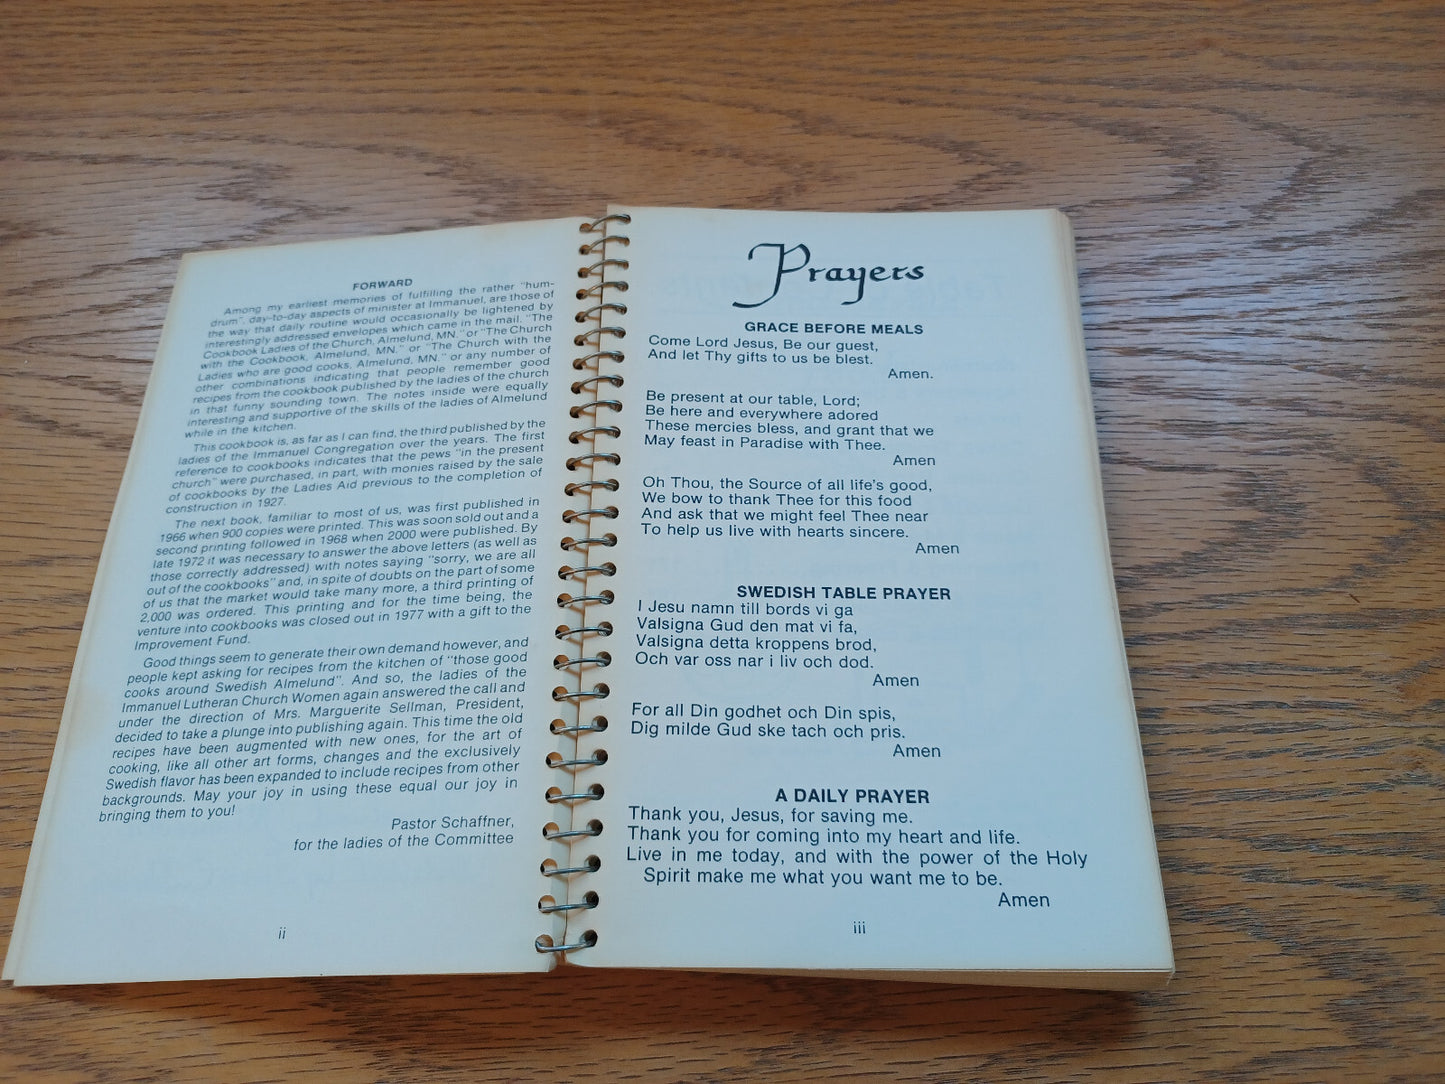 FORWARD
Among my earliest memories of fulfilling the rather "hum-
drum", day-to-day aspects of minister at Immanuel, are those of
the way that daily routine would occasionally be lightened by
interestingly addressed envelopes which came in the mail. "The
Cookbook Ladies of the Church, Almelund, MN." or "The Church
with the Cookbook, Almelund, MN." or "The Church with the
Ladies who are good cooks, Almelund, MN." or any number of
other combinations indicating that people remember good
recipes from the cookbook published by the ladies of the church
in that funny sounding town. The notes inside were equally
interesting and supportive of the skills of the ladies of Almelund
while in the kitchen.
This cookbook is, as far as I can find, the third published by the
ladies of the Immanuel Congregation over the years. The first
reference to cookbooks indicates that the pews "in the present
church" were purchased, in part, with monies raised by the sale
of cookbooks by the Ladies Aid previous to the completion of
construction in 1927.
The next book, familiar to most of us, was first published in
1966 when 900 copies were printed. This was soon sold out and a
second printing followed in 1968 when 2000 were published. By
late 1972 it was necessary to answer the above letters (as well as
those correctly addressed) with notes saying "sorry, we are all
out of the cookbooks" and, in spite of doubts on the part of some
of us that the market would take many more, a third printing of
2,000 was ordered. This printing and for the time being, the
venture into cookbooks was closed out in 1977 with a gift to the
Improvement Fund.
Good things seem to generate their own demand however, and
people kept asking for recipes from the kitchen of "those good
cooks around Swedish Almelund". And so, the ladies of the
Immanuel Lutheran Church Women again answered the call and
under the direction of Mrs. Marguerite Sellman, President,
decided to take a plunge into publishing again. This time the old
recipes have been augmented with new ones, for the art of
cooking, like all other art forms, changes and the exclusively
Swedish flavor has been expanded to include recipes from other
backgrounds. May your joy in using these equal our joy in
bringing them to you!
Pastor Schaffner,
for the ladies of the Committee
ii
Prayers
GRACE BEFORE MEALS
Come Lord Jesus, Be our guest,
And let Thy gifts to us be blest.
Amen.
Be present at our table, Lord;
Be here and everywhere adored
These mercies bless, and grant that we
May feast in Paradise with Thee.
Amen
Oh Thou, the Source of all life's good,
We bow to thank Thee for this food
And ask that we might feel Thee near
To help us live with hearts sincere.
Amen
SWEDISH TABLE PRAYER
I Jesu namn till bords vi ga
Valsigna Gud den mat vi fa,
Valsigna detta kroppens brod,
Och var oss nar i liv och dod.
Amen
For all Din godhet och Din spis,
Dig milde Gud ske tach och pris.
Amen
A DAILY PRAYER
Thank you, Jesus, for saving me.
Thank you for coming into my heart and life.
Live in me today, and with the power of the Holy
Spirit make me what you want me to be.
Amen
iii